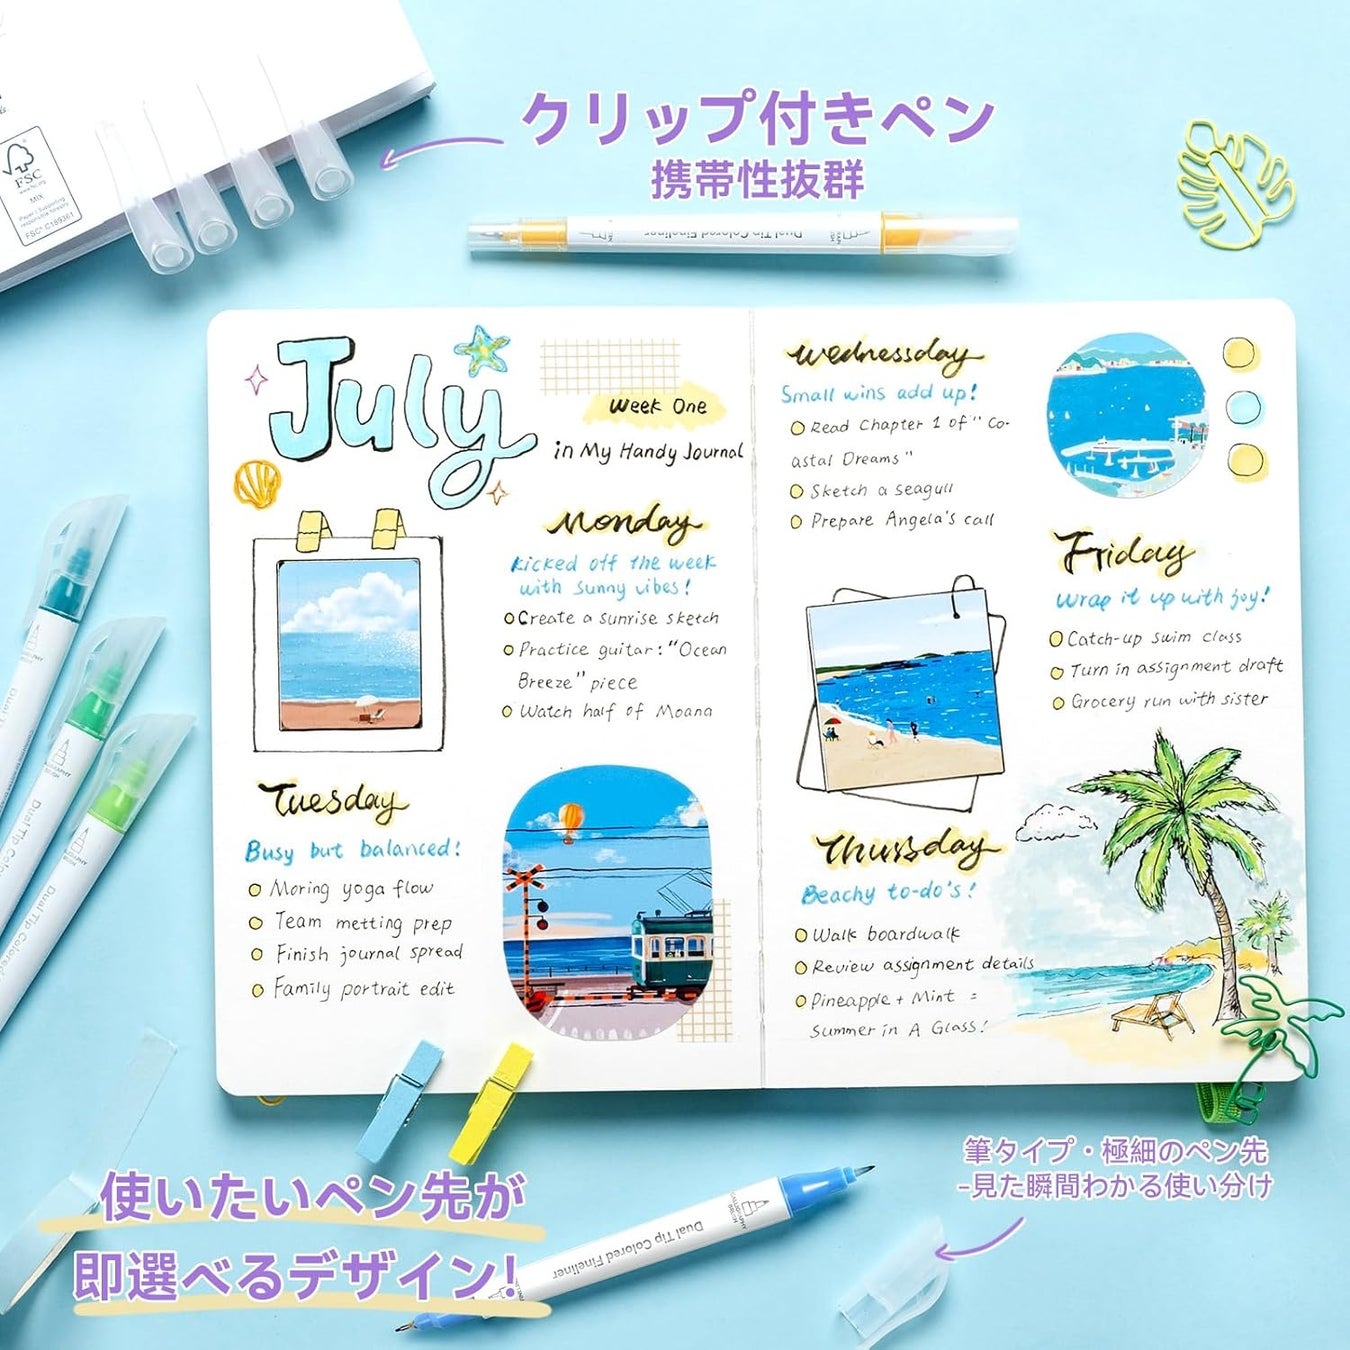 クリップ付きペン
携帯性抜群
FSC
www.fsc.org
MIX
Paper | Supporting
responsible forestry
FSC® C189361
Dual Tip Colored Fineliner
July
Week One
in My Handy Journal
Monday
kicked off the week
with sunny vibes!
Create a sunrise sketch
Practice guitar: "Ocean
Breeze" piece
Watch half of Moana
Tuesday
Busy but balanced!
Moring yoga flow
Team metting prep
Finish journal spread
Family portrait edit
Wednessday
Small wins add up!
Read Chapter 1 of "Co-
astal Dreams"
Sketch a seagull
Prepare Angela's call
Thursday
Beachy to-do's!
Walk boardwalk
Review assignment details
Pineapple + Mint =
Summer in A Glass!
Friday
Wrap it up with joy!
Catch-up swim class
Turn in assignment draft
Grocery run with sister
Dual Tip Co
Dual Tip Colored
使いたいペン先が
即選べるデザイン!
Dual Tip Colored Fineliner
筆タイプ・極細のペン先
-見た瞬間わかる使い分け